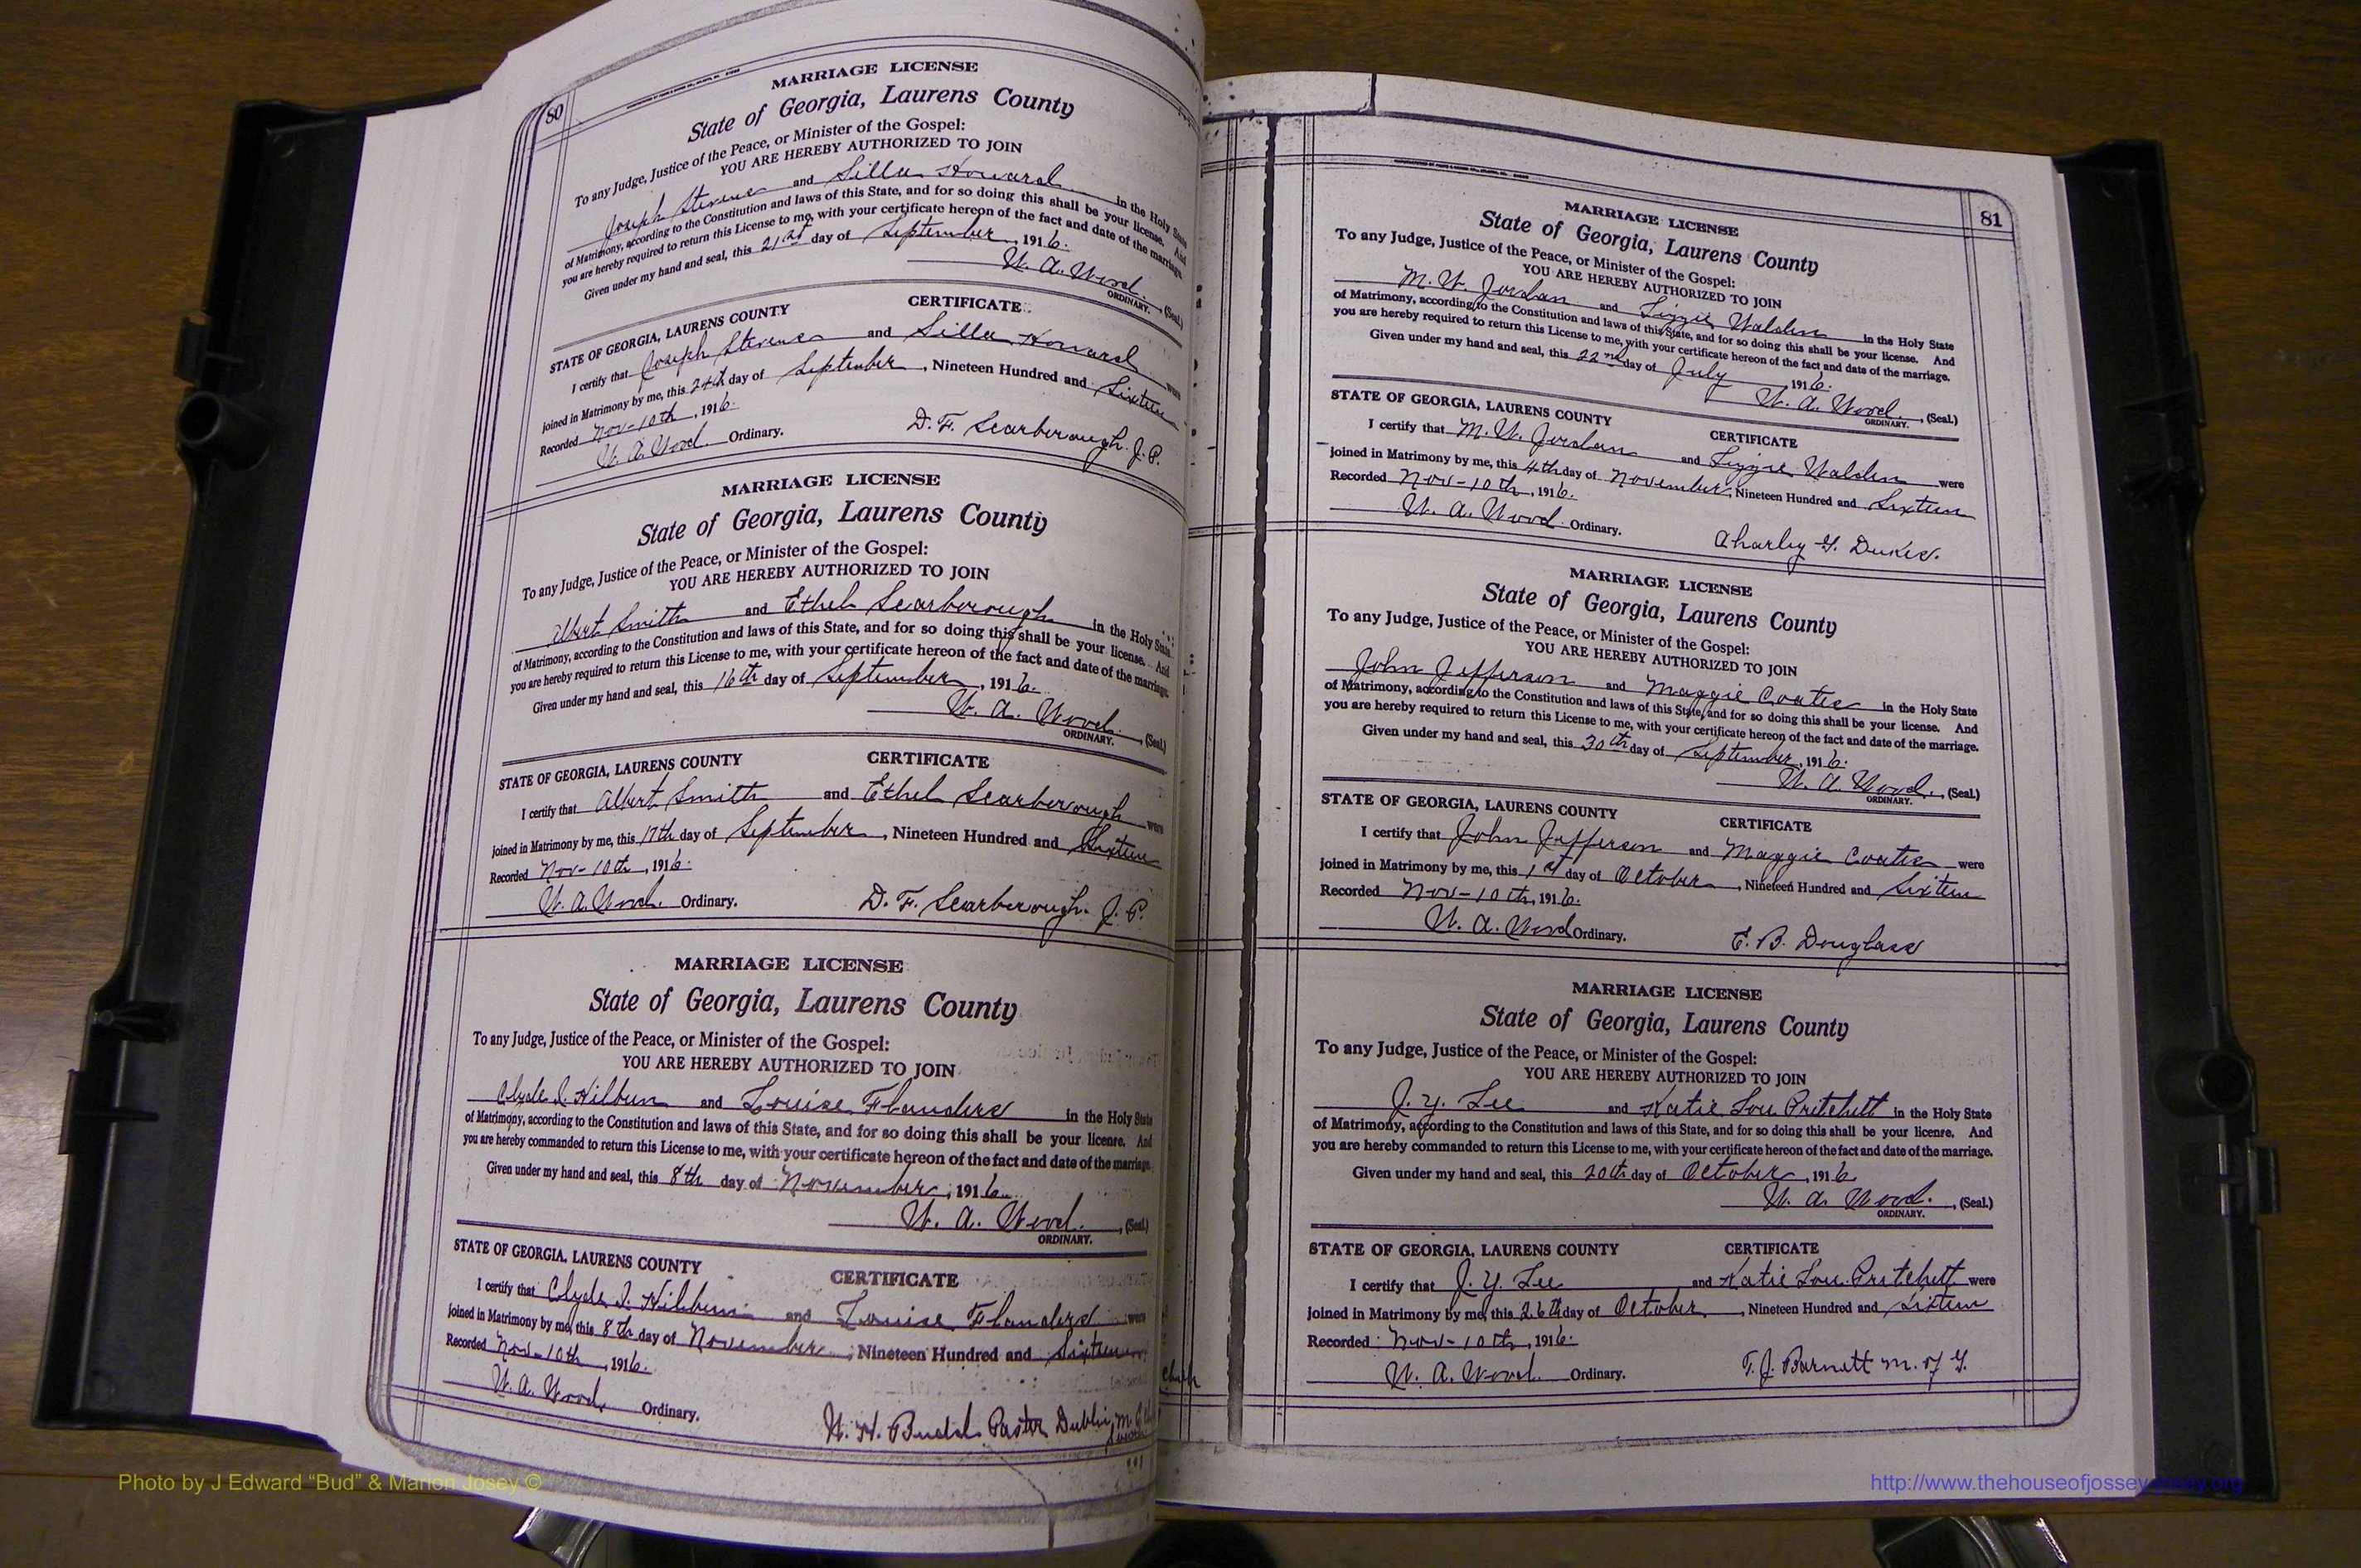 80
MARRIAGE LICENSE
State of Georgia, Laurens County
To any Judge, Justice of the Peace, or Minister of the Gospel:
YOU ARE HEREBY AUTHORIZED TO JOIN
Joseph Stevens and Silla Howard in the Holy State
of Matrimony, according to the Constitution and laws of this State, and for so doing this shall be your license. And
you are hereby required to return this License to me, with your certificate hereon of the fact and date of the marriage.
Given under my hand and seal, this 21st day of September, 1916.
W. A. Wood. (Seal)
ORDINARY.
STATE OF GEORGIA, LAURENS COUNTY CERTIFICATE
I certify that Joseph Stevens and Silla Howard were
joined in Matrimony by me, this 24th day of September, Nineteen Hundred and Sixteen
Recorded Nov-10th, 1916.
W. A. Wood. Ordinary. D. F. Scarborough. J. P.
MARRIAGE LICENSE
State of Georgia, Laurens County
To any Judge, Justice of the Peace, or Minister of the Gospel:
YOU ARE HEREBY AUTHORIZED TO JOIN
Albert Smith and Ethel Scarborough in the Holy State
of Matrimony, according to the Constitution and laws of this State, and for so doing this shall be your license. And
you are hereby required to return this License to me, with your certificate hereon of the fact and date of the marriage.
Given under my hand and seal, this 16th day of September, 1916.
W. A. Wood. (Seal)
ORDINARY.
STATE OF GEORGIA, LAURENS COUNTY CERTIFICATE
I certify that Albert Smith and Ethel Scarborough were
joined in Matrimony by me, this 17th day of September, Nineteen Hundred and Sixteen
Recorded Nov-10th, 1916.
W. A. Wood. Ordinary. D. F. Scarborough. J. P.
MARRIAGE LICENSE
State of Georgia, Laurens County
To any Judge, Justice of the Peace, or Minister of the Gospel:
YOU ARE HEREBY AUTHORIZED TO JOIN
Clyde J. Hilbun and Louise Flanders in the Holy State
of Matrimony, according to the Constitution and laws of this State, and for so doing this shall be your license. And
you are hereby commanded to return this License to me, with your certificate hereon of the fact and date of the marriage.
Given under my hand and seal, this 8th day of November, 1916.
W. A. Wood. (Seal)
ORDINARY.
STATE OF GEORGIA, LAURENS COUNTY CERTIFICATE
I certify that Clyde J. Hilbun and Louise Flanders were
joined in Matrimony by me, this 8th day of November, Nineteen Hundred and Sixteen
Recorded Nov-10th, 1916.
W. A. Wood. Ordinary.
W. H. Budd Pastor Dublin
81
MARRIAGE LICENSE
State of Georgia, Laurens County
To any Judge, Justice of the Peace, or Minister of the Gospel:
YOU ARE HEREBY AUTHORIZED TO JOIN
M. W. Jordan and Lizzie Walden in the Holy State
of Matrimony, according to the Constitution and laws of this State, and for so doing this shall be your license. And
you are hereby required to return this License to me, with your certificate hereon of the fact and date of the marriage.
Given under my hand and seal, this 22nd day of July 1916.
W. A. Wood. (Seal)
ORDINARY.
STATE OF GEORGIA, LAURENS COUNTY CERTIFICATE
I certify that M. W. Jordan and Lizzie Walden were
joined in Matrimony by me, this 4th day of November, Nineteen Hundred and Sixteen
Recorded Nov-10th, 1916.
W. A. Wood Ordinary. Charley G. Dukes.
MARRIAGE LICENSE
State of Georgia, Laurens County
To any Judge, Justice of the Peace, or Minister of the Gospel:
YOU ARE HEREBY AUTHORIZED TO JOIN
John Jefferson and Maggie Coates in the Holy State
of Matrimony, according to the Constitution and laws of this State, and for so doing this shall be your license. And
you are hereby required to return this License to me, with your certificate hereon of the fact and date of the marriage.
Given under my hand and seal, this 30th day of September, 1916.
W. A. Wood. (Seal)
ORDINARY.
STATE OF GEORGIA, LAURENS COUNTY CERTIFICATE
I certify that John Jefferson and Maggie Coates were
joined in Matrimony by me, this 1st day of October, Nineteen Hundred and Sixteen
Recorded Nov-10th, 1916.
W. A. Wood Ordinary. E. B. Douglass
MARRIAGE LICENSE
State of Georgia, Laurens County
To any Judge, Justice of the Peace, or Minister of the Gospel:
YOU ARE HEREBY AUTHORIZED TO JOIN
J. Y. Lee and Katie Lou Pritchett in the Holy State
of Matrimony, according to the Constitution and laws of this State, and for so doing this shall be your license. And
you are hereby commanded to return this License to me, with your certificate hereon of the fact and date of the marriage.
Given under my hand and seal, this 20th day of October, 1916.
W. A. Wood. (Seal.)
ORDINARY.
STATE OF GEORGIA, LAURENS COUNTY CERTIFICATE
I certify that J. Y. Lee and Katie Lou Pritchett were
joined in Matrimony by me, this 26th day of October, Nineteen Hundred and Sixteen
Recorded Nov-10th, 1916.
W. A. Wood. Ordinary. T. J. Barnett M. of G.
Photo by J Edward “Bud” & Marion Josey ©
http://www.thehouseofjossey-josey.org